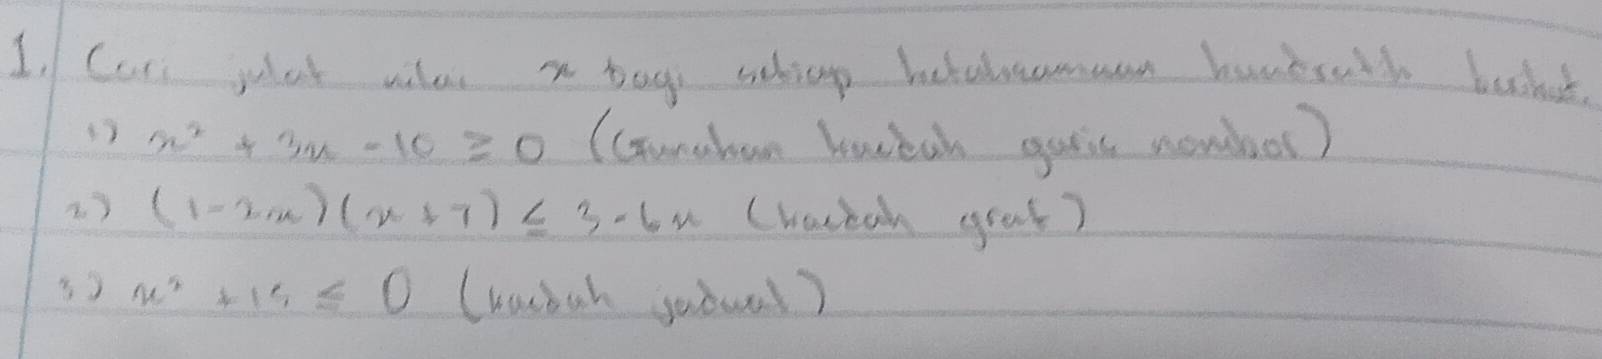 1. Cari julat nilai x bagi setiap ketaksamaan kuadratik berikut.
1) x² + 3x - 10 ≥ 0 (Gunakan kaedah garis nombor)
2) (1-2x)(x+7) ≤ 3-6x (kaedah graf)
3) x² + 15 ≤ 0 (kaedah jadual)